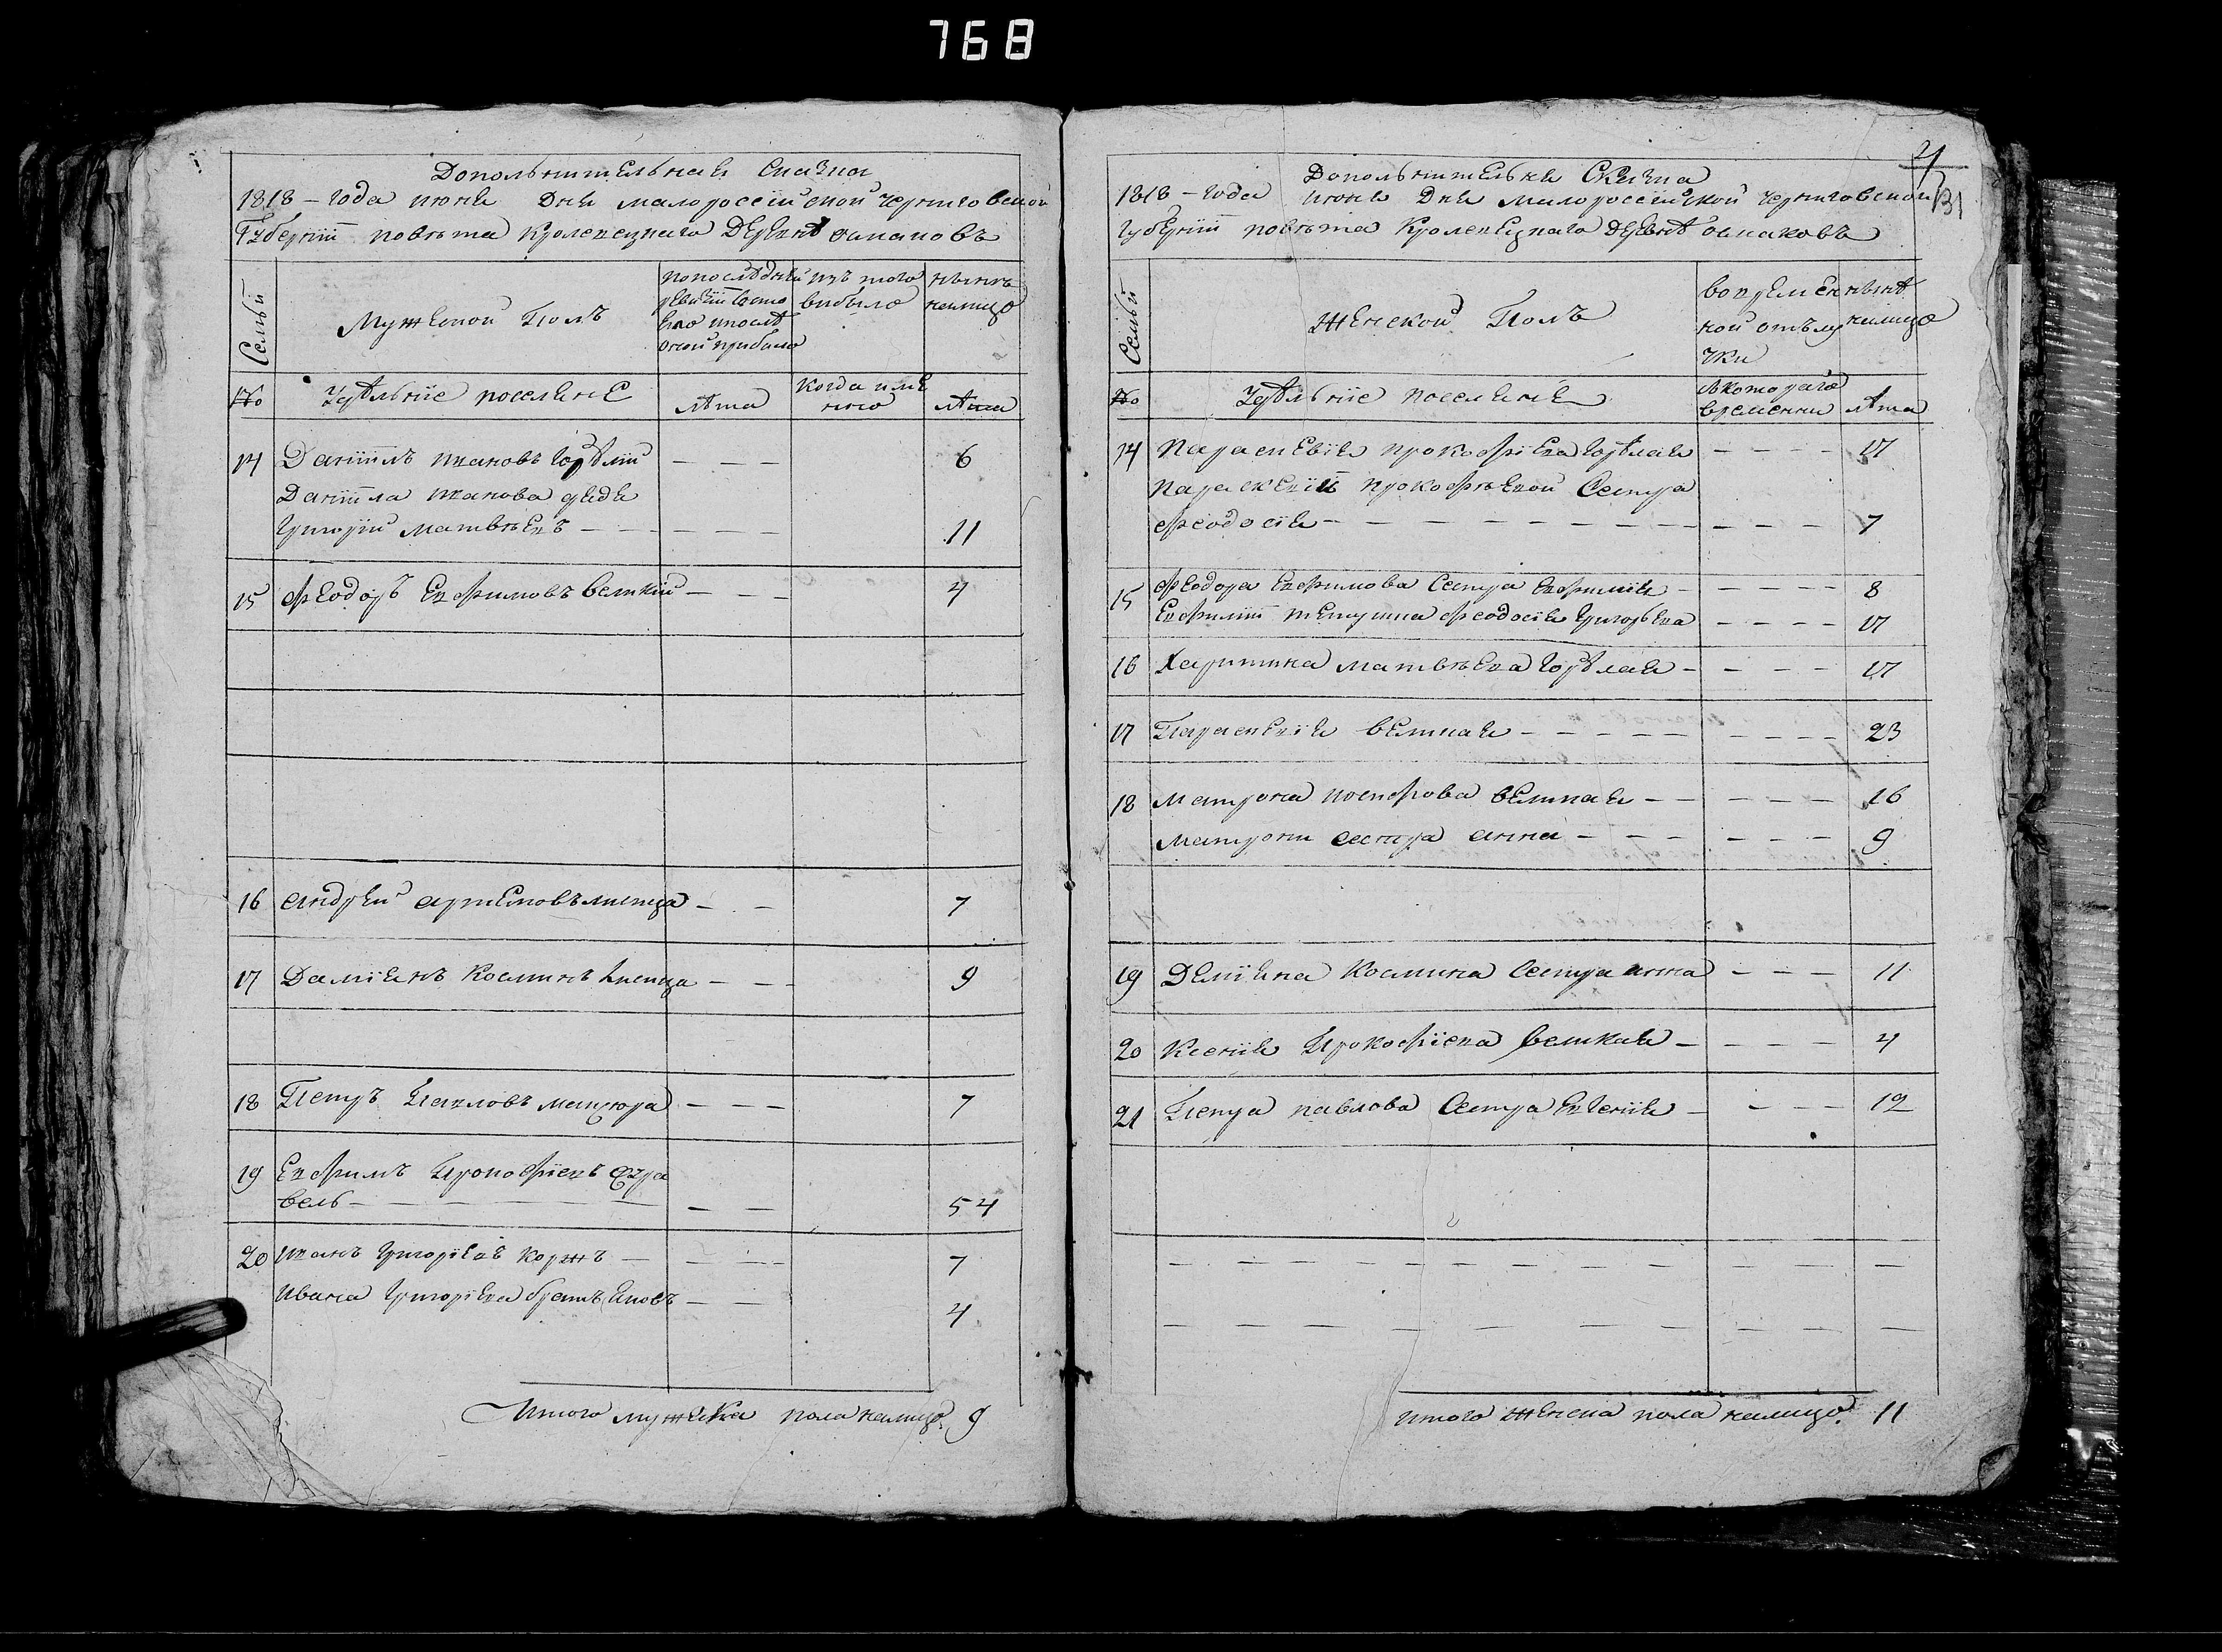 768
Дополнительная Сказка
1818 – года июня дня малороссийской Черниговской
Губернии повѣта Кролевецкаго Деревнѣ
Семьи
Мужеской Полъ
по послѣдней
ревизии состо
яло и послѣ
оной прибыло
изъ того
выбыло
нынѣ
налицо
№
Удѣльние поселяне
лѣта
когда име
нно
лѣта
14 Даниилъ Ивановъ Горѣлий – – – 6
Даниила Иванова дядя
Григорий Матвѣевъ – – – – – 11
15 Феодоръ Евфимовъ Великий – – – 4
16 Андрей Артемовъ – – 7
17 Дамиянъ Косминъ – – – 9
18 Петръ Павловъ – – – 7
19 Евфимъ Прокофиевъ Жура
вель – – – – – 54
20 Иванъ Григориевъ Коржъ – – – – 7
Ивана Григориева братъ Яковъ – – 4
Итого мужеска пола налицо 9
4
131
Дополнительна Сказка
1818 – года июня дня малороссийской Черниговской
Губернии повѣта Кролевецкаго деревнѣ
Семьи
Женской Полъ
во времен
ной отълу
чки
нынѣ
налицо
№
Удѣльние поселяне
съ котораго
временни
лѣта
14 Параскевия Прокофиева Горѣлая – – – – 17
Параскевии Прокофьевой Сестра
Феодосия – – – – – – – – – – – – 7
15 Феодора Евфимова Сестра Евфимия – – – – – 8
Евфимии тетушка Феодосия Григорьева – – – – 17
16 Харитина Матвѣева Горѣлая – – – – 17
17 Параскевия Великая – – – – – – – – – 23
18 Матрона Великая – – – – – 16
Матрони сестра Анна – – – – – – – 9
19 Демияна Космина Сестра Анна – – – 11
20 Ксения Прокофиева Великая – – – – 4
21 Петра Павлова Сестра Евгения – – – – 12
– – – – – – – – – – – – – – –
– – – – – – – – – – –
итого женска пола налицо. 11